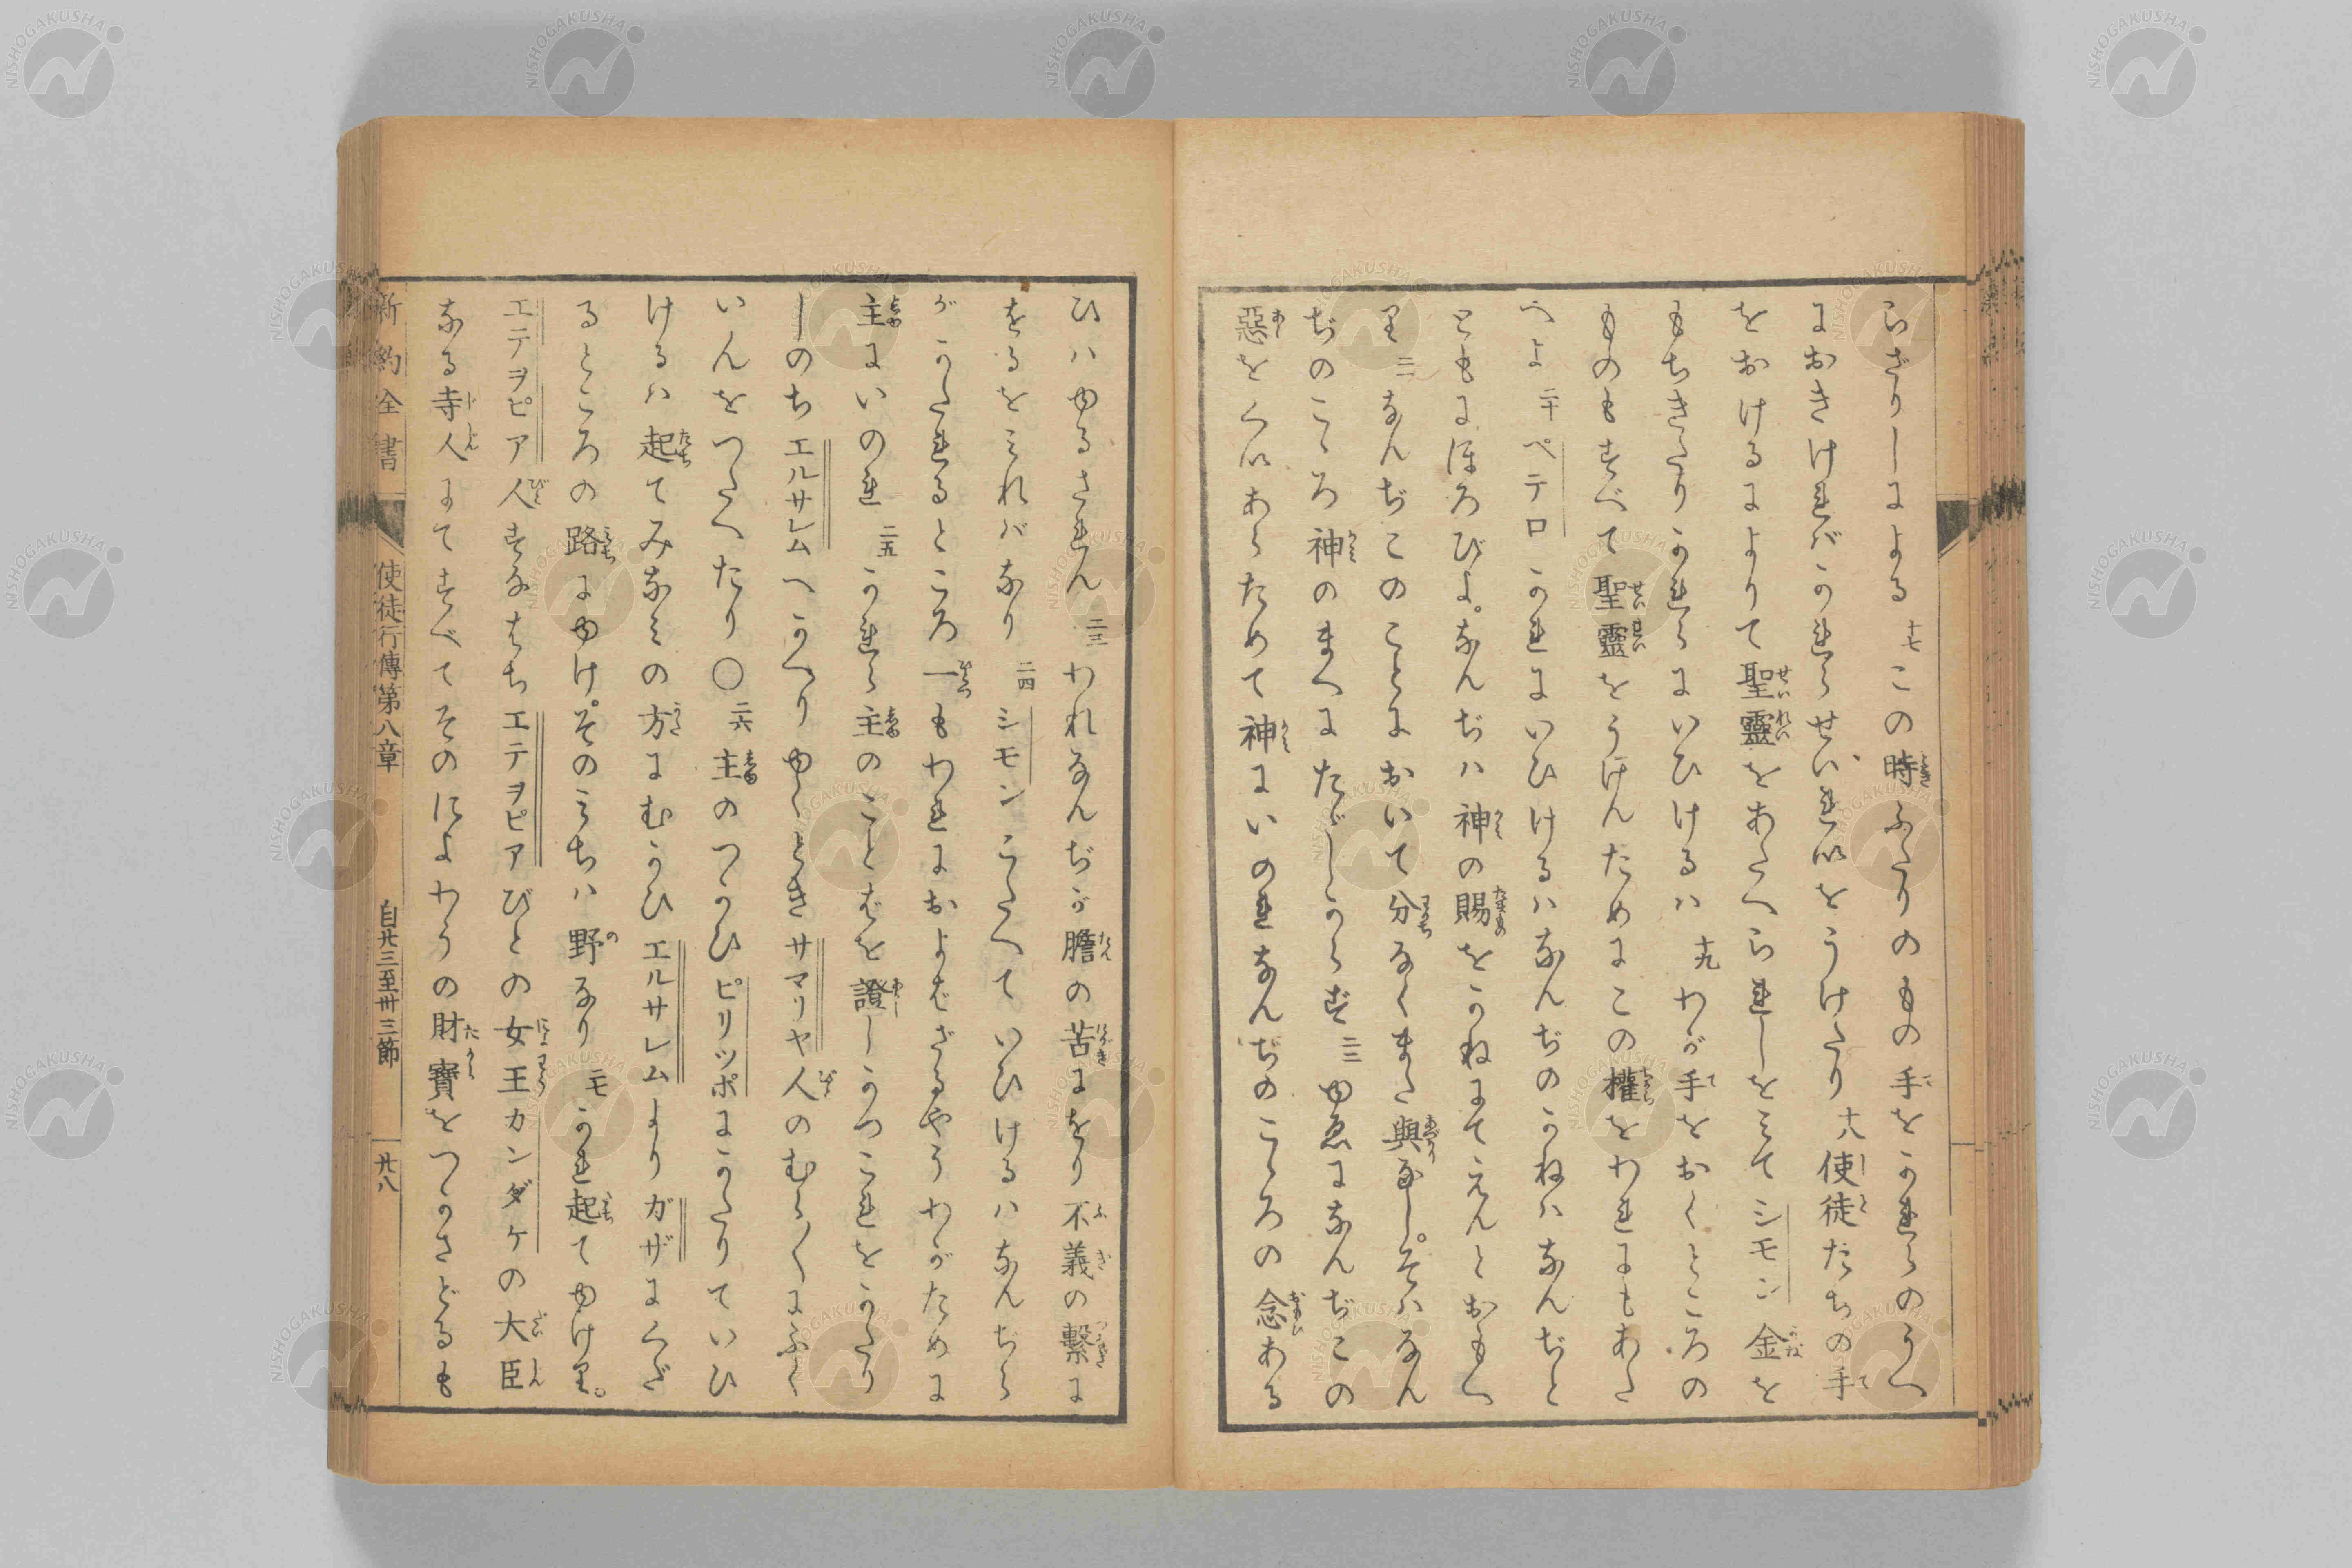 らざりしによる 十七 この時ふたりのもの手をかれらのうへ
におきければかれらせいれいをうけたり 十八 使徒たちの手
をおけるによりて聖靈をあたへられしをみてシモン金を
もちきたりかれらにいひけるハ 十九 わが手をおくところの
ものもすべて聖靈をうけんためにこの權をわれにもあた
へよ 二十 ペテロかれにいひけるハなんぢのかねハなんぢと
ともにほろびよ。なんぢハ神の賜をかねにてえんとおもへ
り 二一 なんぢこのことにおいて分なくまた與なし。そハなん
ぢのこゝろ神のまへにたゞしからず 二二 ゆゑになんぢこの
惡をくいあらためて神にいのれなんぢのこゝろの念ある
ひハゆるされん 二三 われなんぢが膽の苦にをり不義の繫に
をるをみれバなり 二四 シモンこたへていひけるハなんぢら
がかたれるところ一もわれにおよばざるやうわがために
主にいのれ 二五 かれら主のことばを證しかつこれをかたり
しのちエルサレムへかへりゆくときサマリヤ人のむら〱にふく
いんをつたへたり 〇 二六 主のつかひピリツポにかたりていひ
けるハ起てみなみの方にむかひエルサレムよりガザにくだ
るところの路にゆけ。そのみちハ野なり 二七 かれ起てゆけり。
エテヲピア人すなはちエテヲピアびとの女王カンダケの大臣
なる寺人にてすべてそのにょわうの財寶をつかさどるも
新約全書 使徒行傳第八章 自廿三至卅三節 廿八